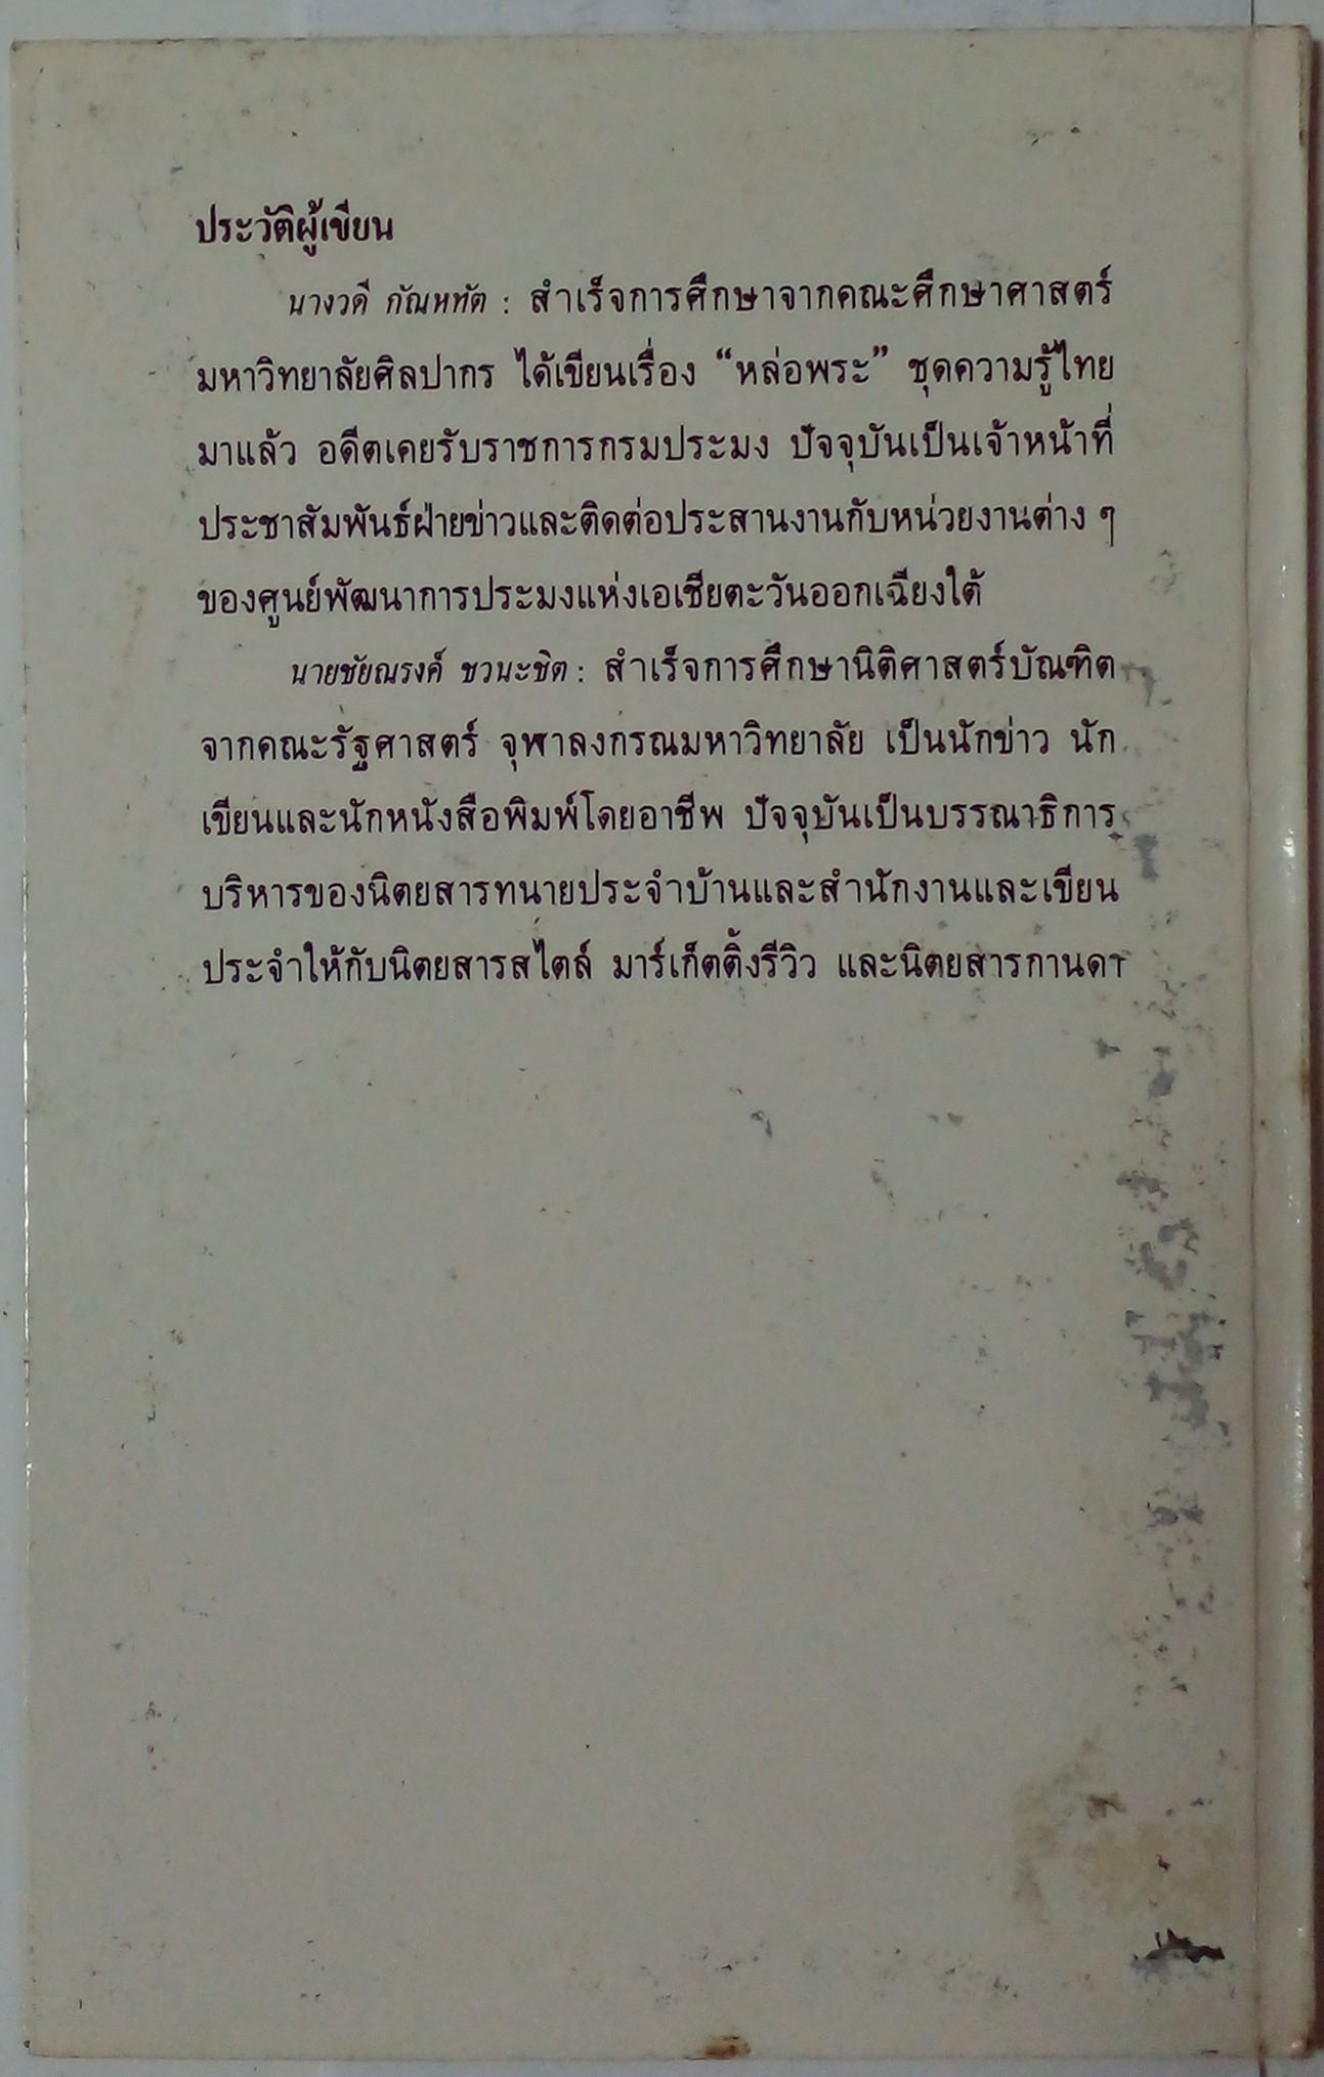 ประวัติผู้เขียน
นางวดี กัณหทัต : สำเร็จการศึกษาจากคณะศึกษาศาสตร์
มหาวิทยาลัยศิลปากร ได้เขียนเรื่อง “หล่อพระ” ชุดความรู้ไทย
มาแล้ว อดีตเคยรับราชการกรมประมง ปัจจุบันเป็นเจ้าหน้าที่
ประชาสัมพันธ์ฝ่ายข่าวและติดต่อประสานงานกับหน่วยงานต่าง ๆ
ของศูนย์พัฒนาการประมงแห่งเอเชียตะวันออกเฉียงใต้
นายชัยณรงค์ ชวนะชิต : สำเร็จการศึกษานิติศาสตร์บัณฑิต
จากคณะรัฐศาสตร์ จุฬาลงกรณมหาวิทยาลัย เป็นนักข่าว นัก
เขียนและนักหนังสือพิมพ์โดยอาชีพ ปัจจุบันเป็นบรรณาธิการ
บริหารของนิตยสารทนายประจำบ้านและสำนักงานและเขียน
ประจำให้กับนิตยสารสไตล์ มาร์เก็ตติ้งรีวิว และนิตยสารกานดา